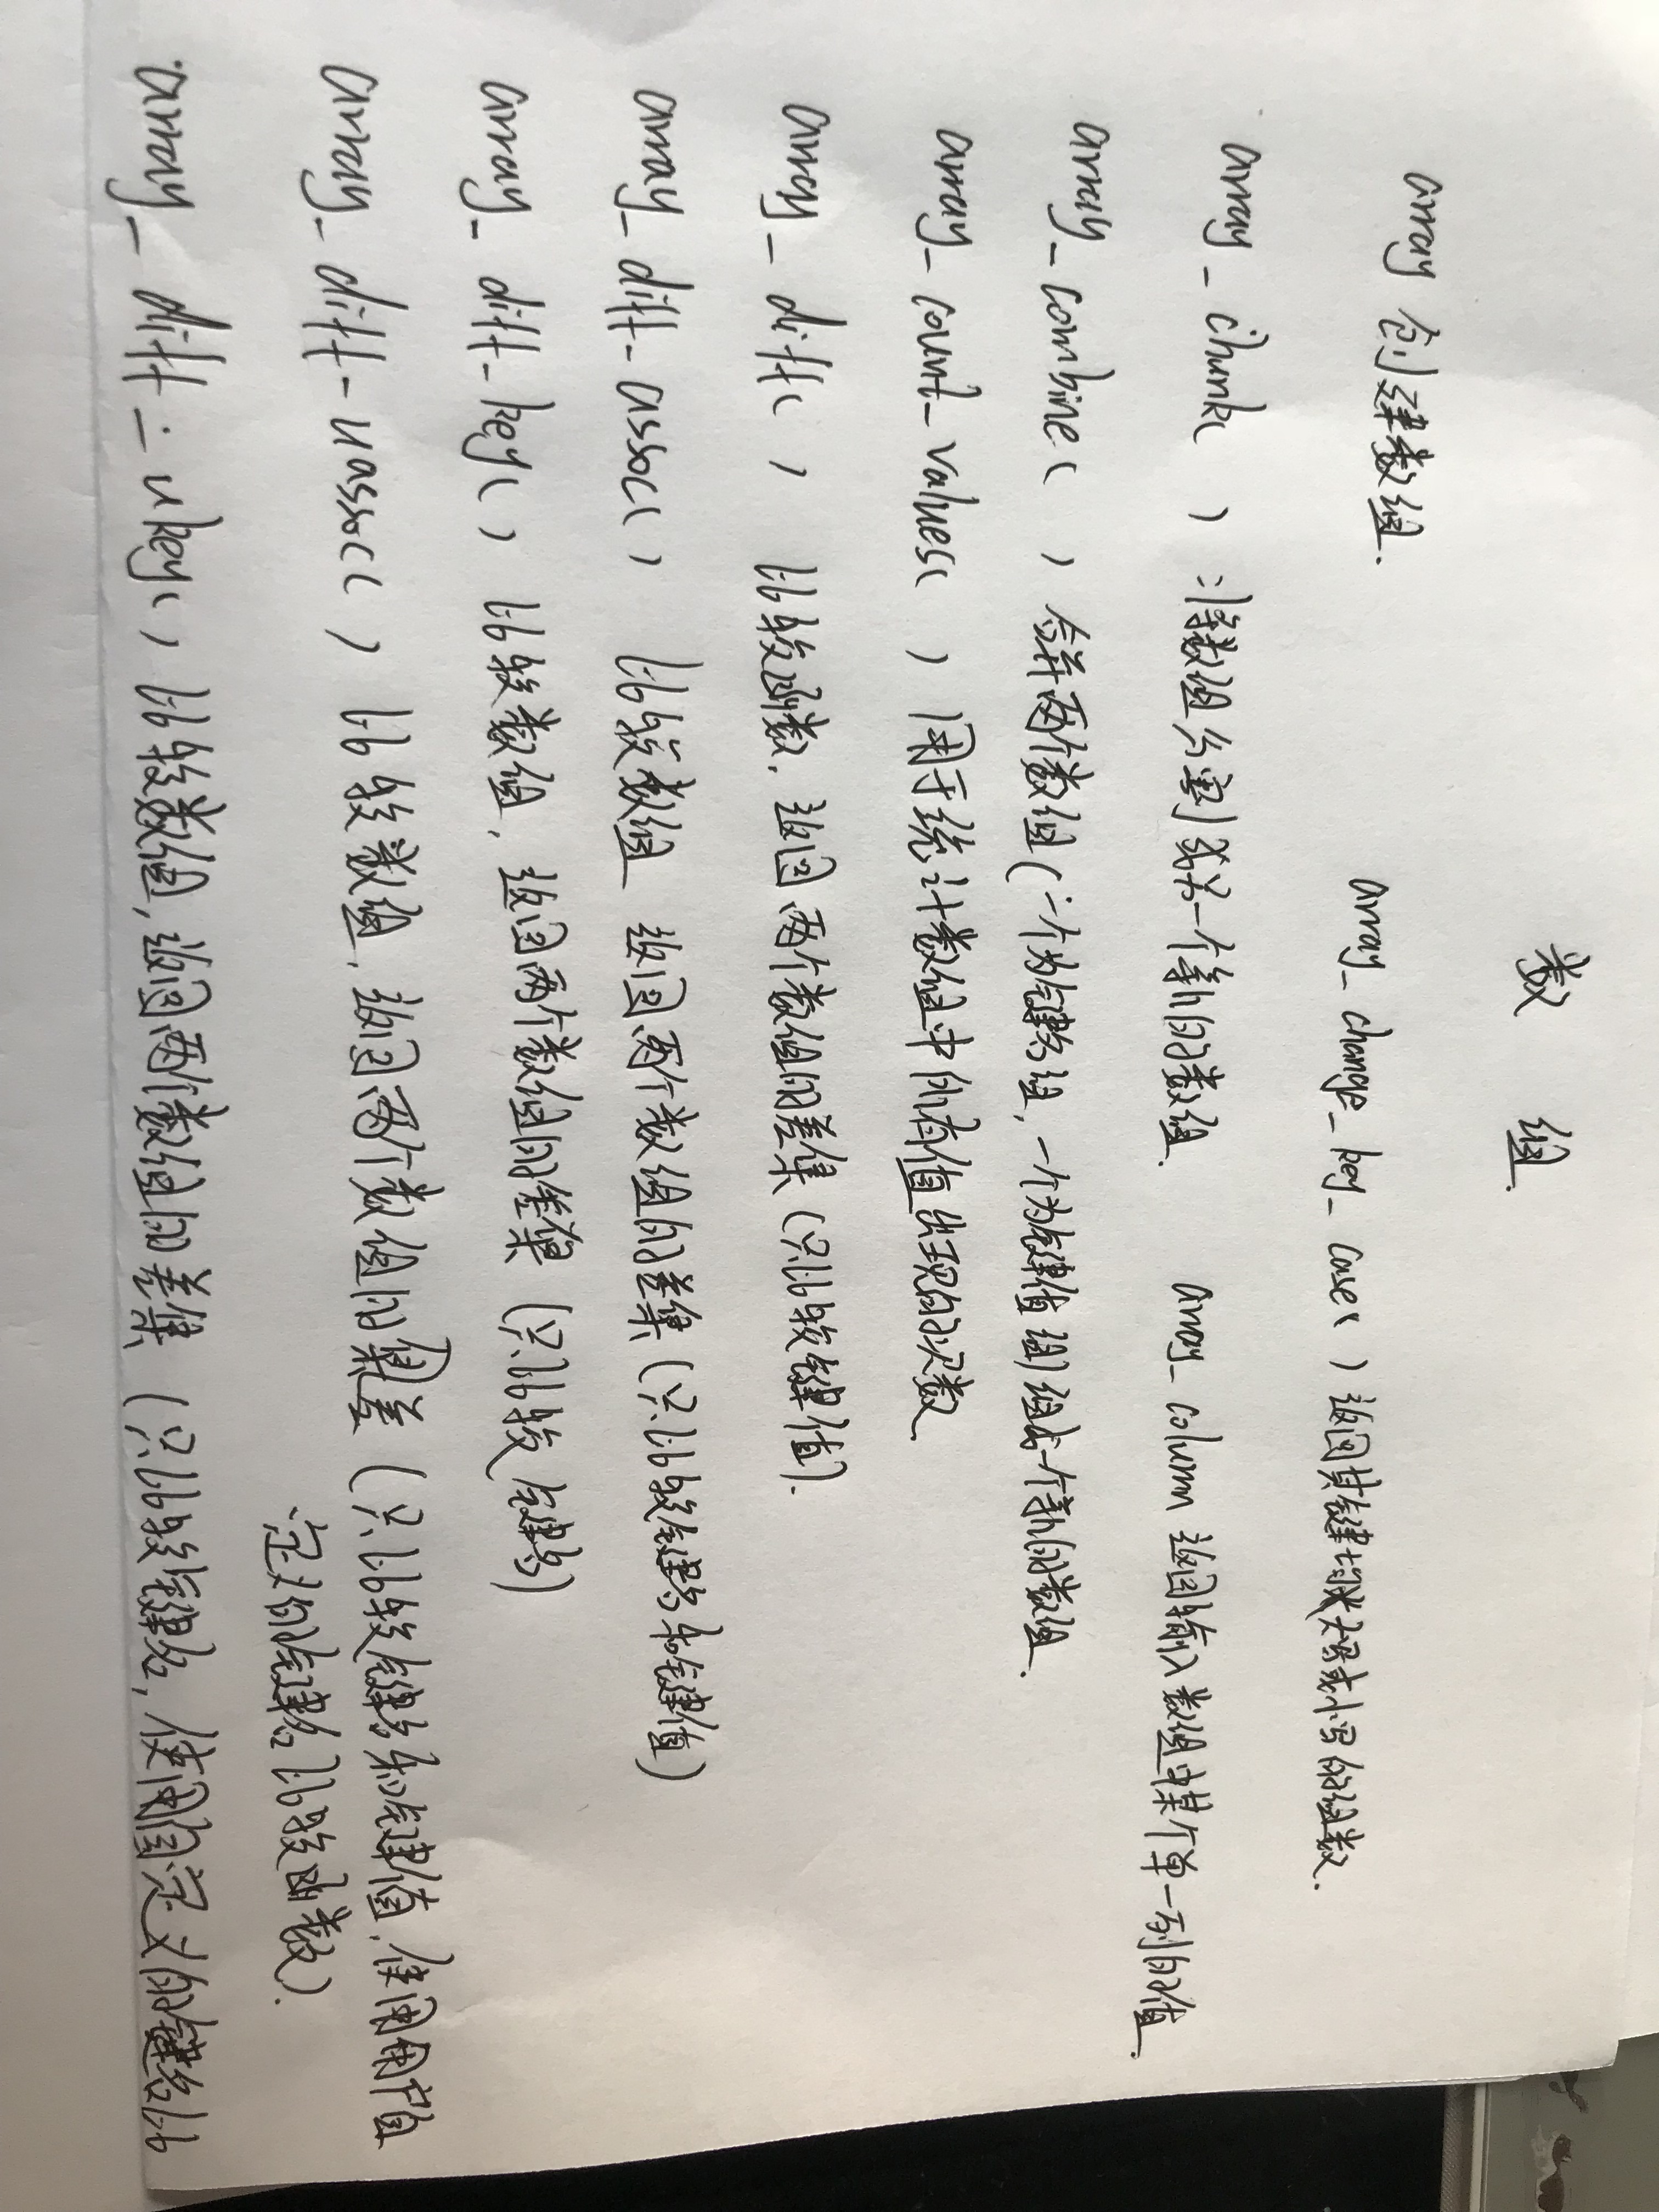 数 组.
array 创建数组.
array_change_key_case( ) 返回其键均为大写或小写的组数.
array_chunk( ):将数组分割成为一个新的数组.
array_column 返回输入数组中某个单一列的值.
array_combine( ) 合并两个数组(一个为键名组,一个为键值组)组成一个新的数组.
array_count_values( ) 用于统计数组中所有值出现的次数.
array_diff( ) 比较函数,返回两个数组的差集(只比较键值).
array_diff_assoc( ) 比较数组 返回两个数组的差集(只比较键名和键值)
array_diff_key( ) 比较数组,返回两个数组的差集(只比较键名)
array_diff_uassoc( ) 比较数组,返回两个数组的差(只比较键名和键值,使用用户自
定义的键名比较函数).
array_diff_ukey( ) 比较数组,返回两个数组的差集(只比较键名,使用自定义的键名比